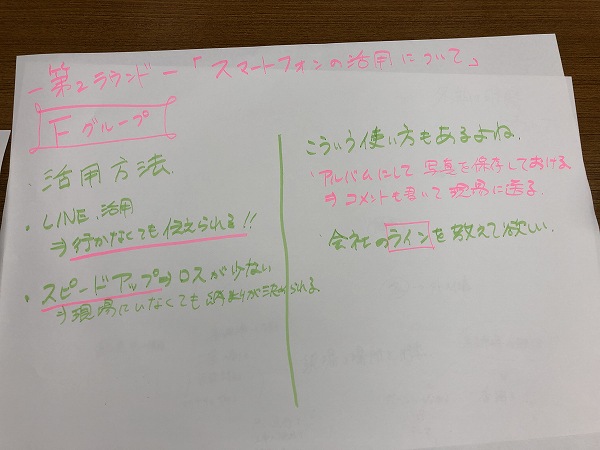 －第2ラウンド－「スマートフォンの活用について」
Fグループ
・活用方法.
・LINE活用
⇒行かなくても伝えられる!!
・スピードアップ⇒ロスが少ない
⇒現場にいなくても納まりが決められる
こういう使い方もあるよね.
・アルバムにして写真を保存しておける
⇒コメントも書いて現場に送る.
・会社のラインを教えて欲しい.